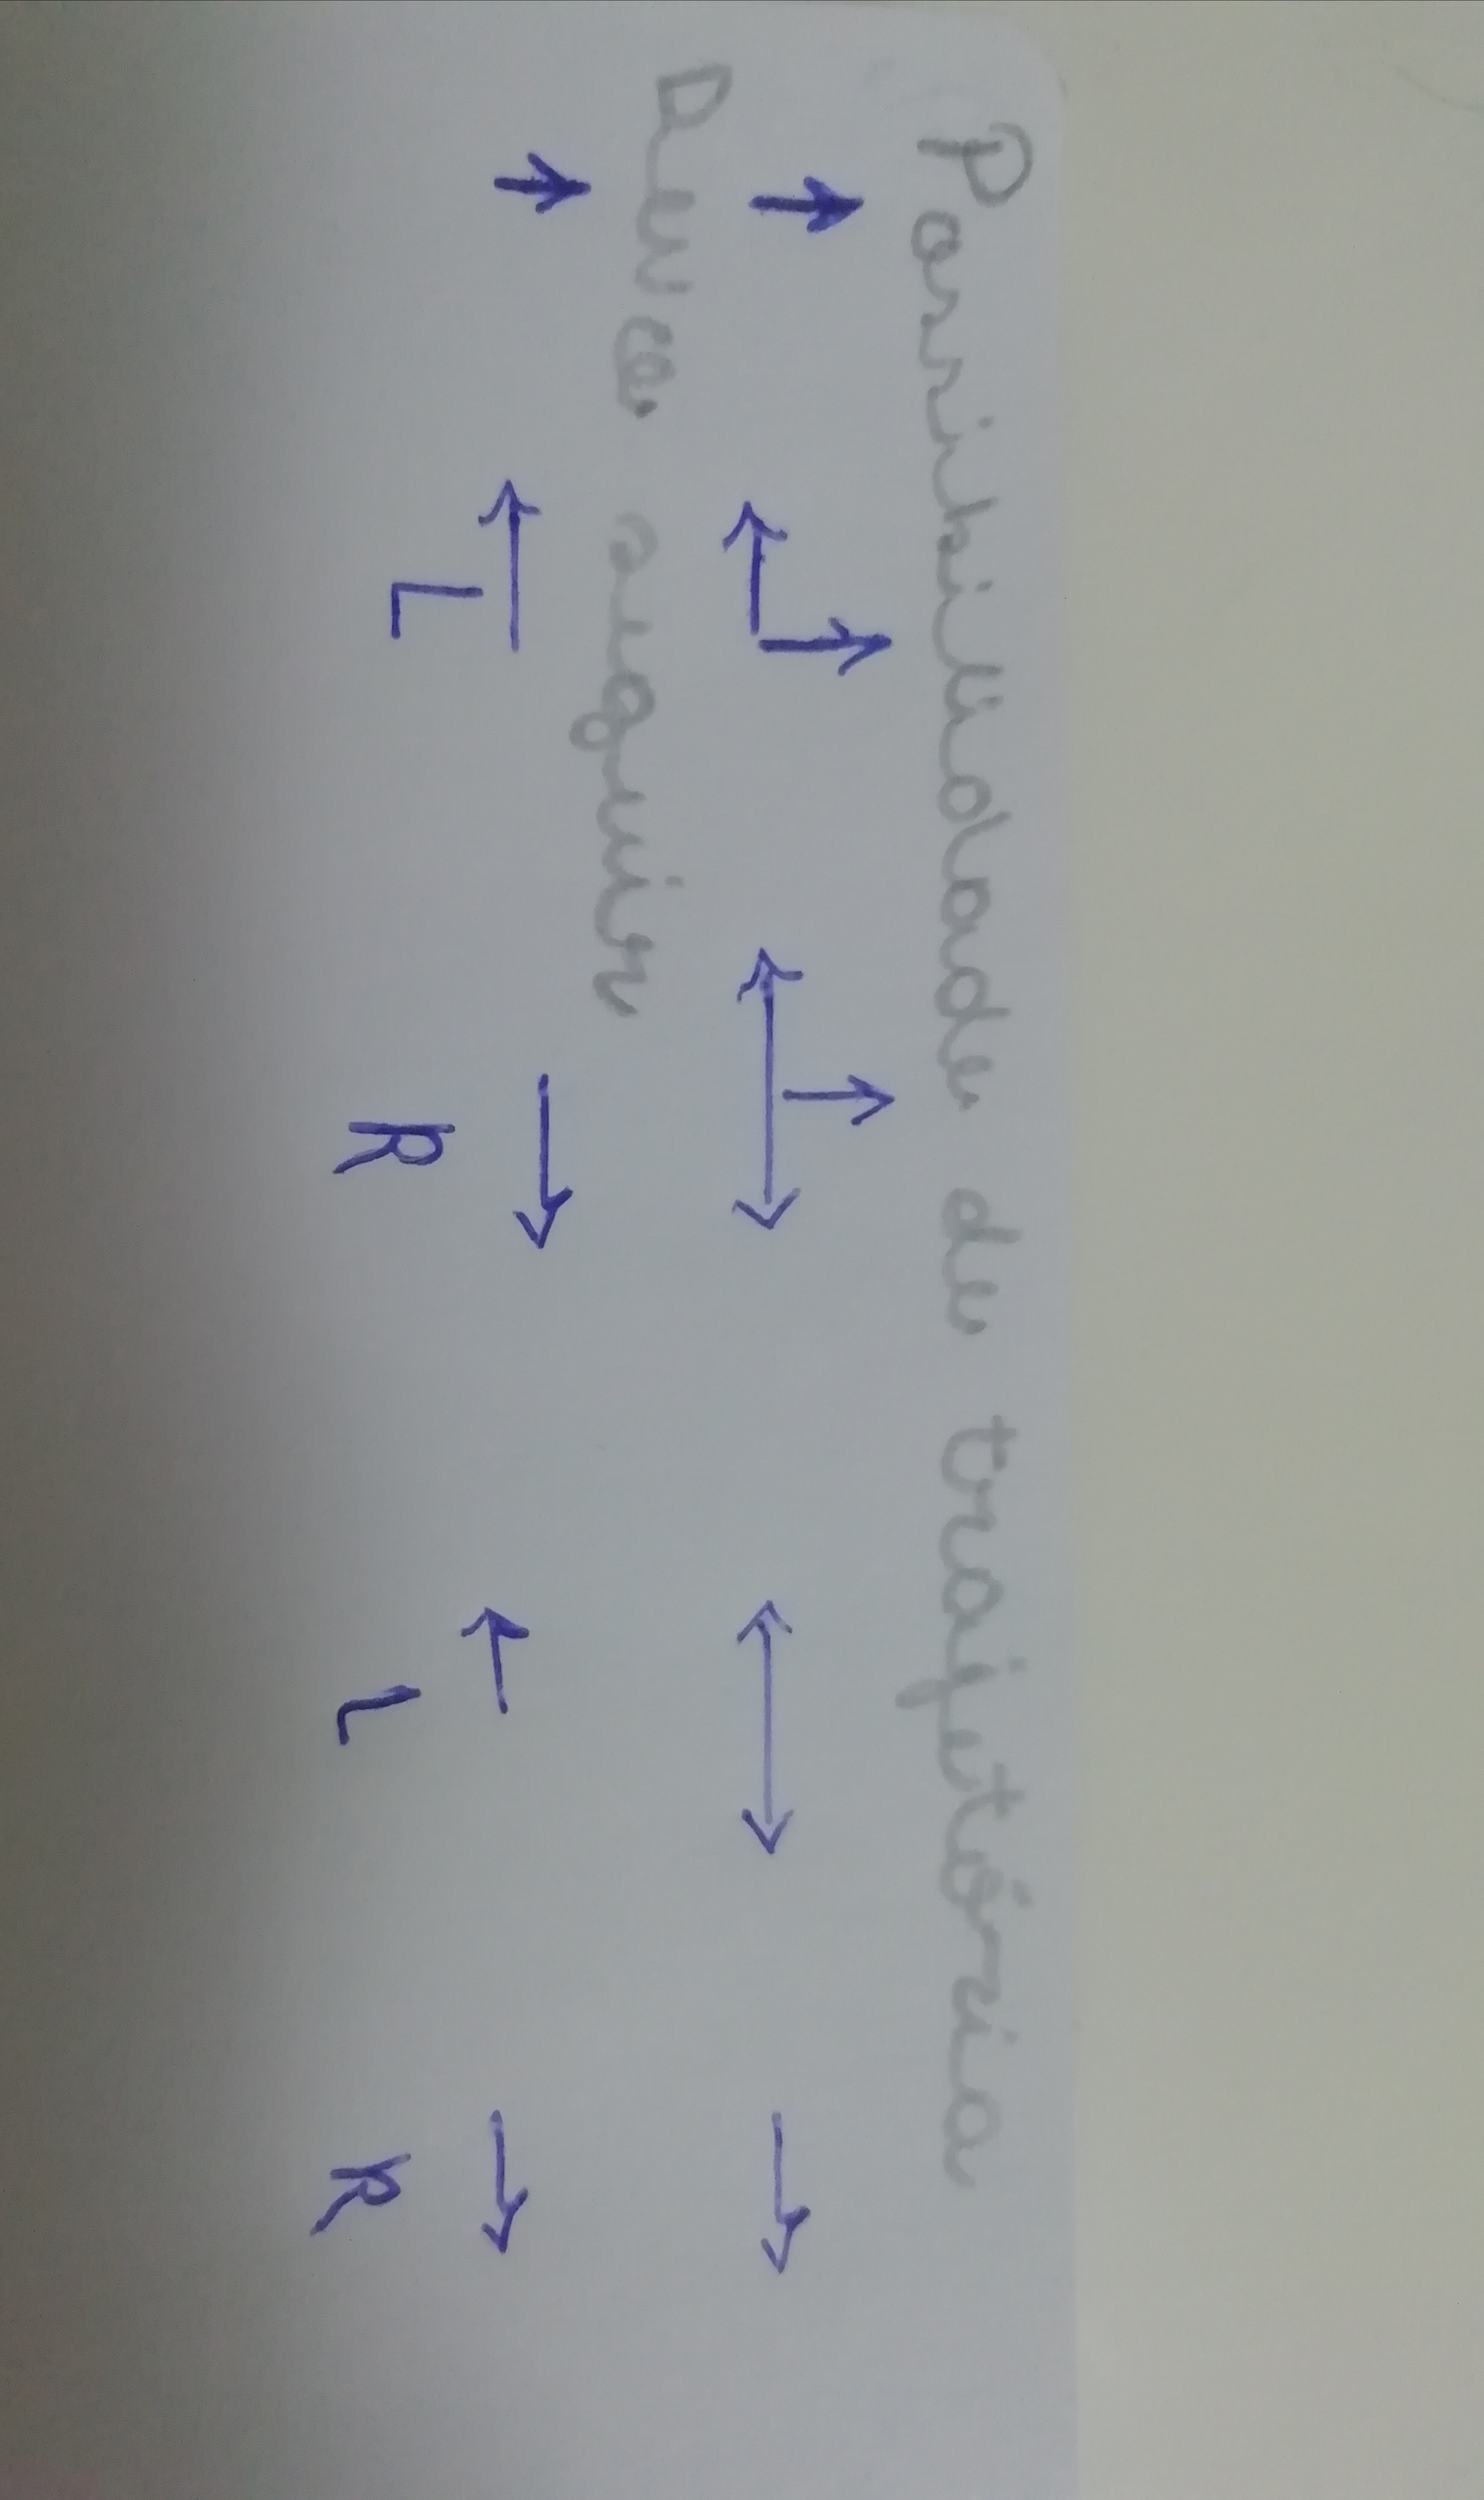 Possibilidade de trajetória
Deve seguir
L R L R